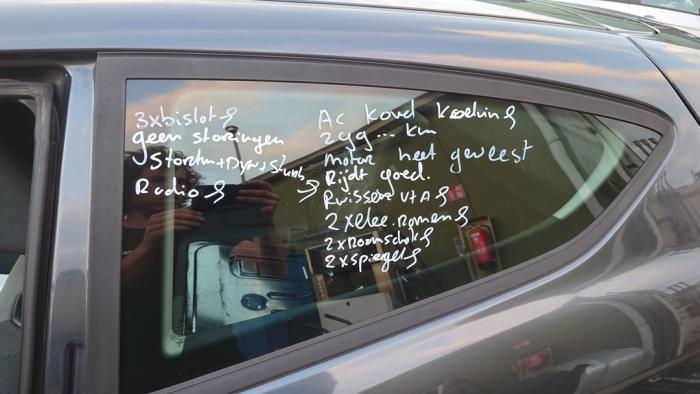 3xbislot
geen storingen
Startm + Dynu Slurb
Radio
Ac koud
299... km
motor heet geweest
Rijdt goed.
Rwissers V+A
2xelec. Ramen
2xRoomschok
2xspiegel